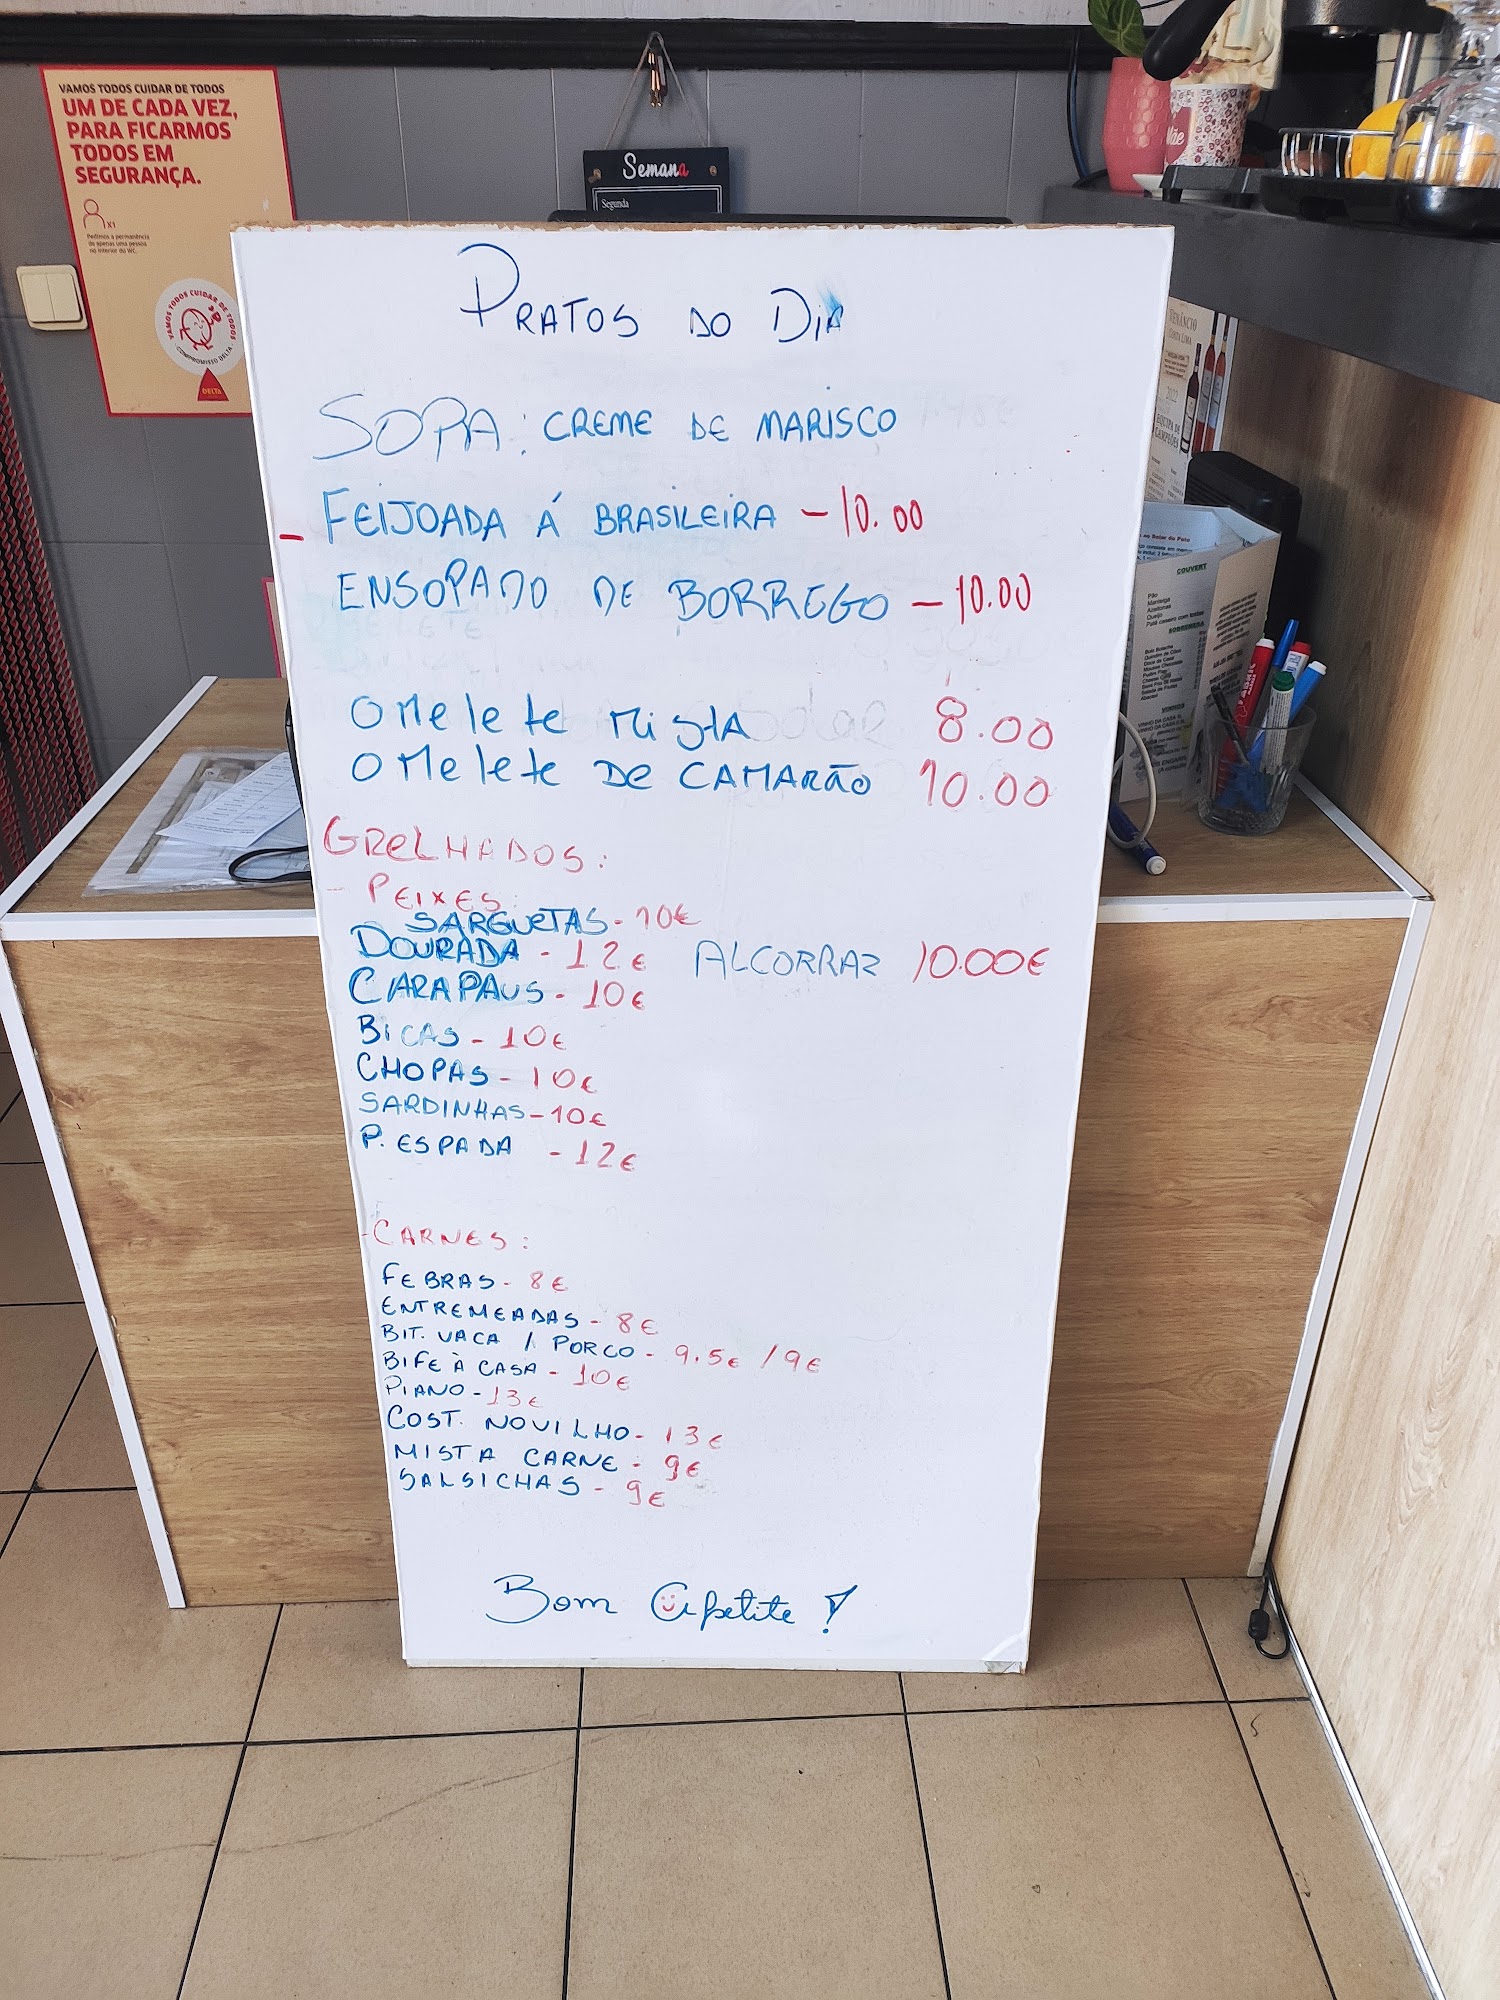 VAMOS TODOS CUIDAR DE TODOS
UM DE CADA VEZ,
PARA FICARMOS
TODOS EM
SEGURANÇA.
X1
Pedimos a permanência
de apenas uma pessoa
no interior do WC.
VAMOS TODOS CUIDAR DE TODOS
COMPROMISSO DELTA
DELTA
Semana
Segunda
Mãe
PRATOS DO DiA
SOPA: CREME DE MARISCO
- FEIJOADA Á BRASILEIRA - 10.00
ENSOPADO DE BORREGO - 10.00
OMelete MistA 8.00
OMelete De CAMARÃO 10.00
GReLHADOS:
- PEIXES:
SARGUETAS - 10€
DOURADA - 12€ ALCORRAZ 10.00€
CARAPAUS - 10€
BiCAS - 10€
CHOPAS - 10€
SARDINHAS - 10€
P. ESPADA - 12€
- CARNES:
FEBRAS - 8€
ENTREMEADAS - 8€
BIT. VACA / PORCO - 9.5€ / 9€
BIFE À CASA - 10€
PIANO - 13€
COST. NOVILHO - 13€
MISTA CARNE - 9€
SALSICHAS - 9€
Bom Apetite!
VENÂNCIO
COSTA LIMA
2022
EQUIPA DE
CAMPEÕES
COUVERT
Pão
Manteiga
Azeitonas
Queijo
SOBREMESA
VINHOS